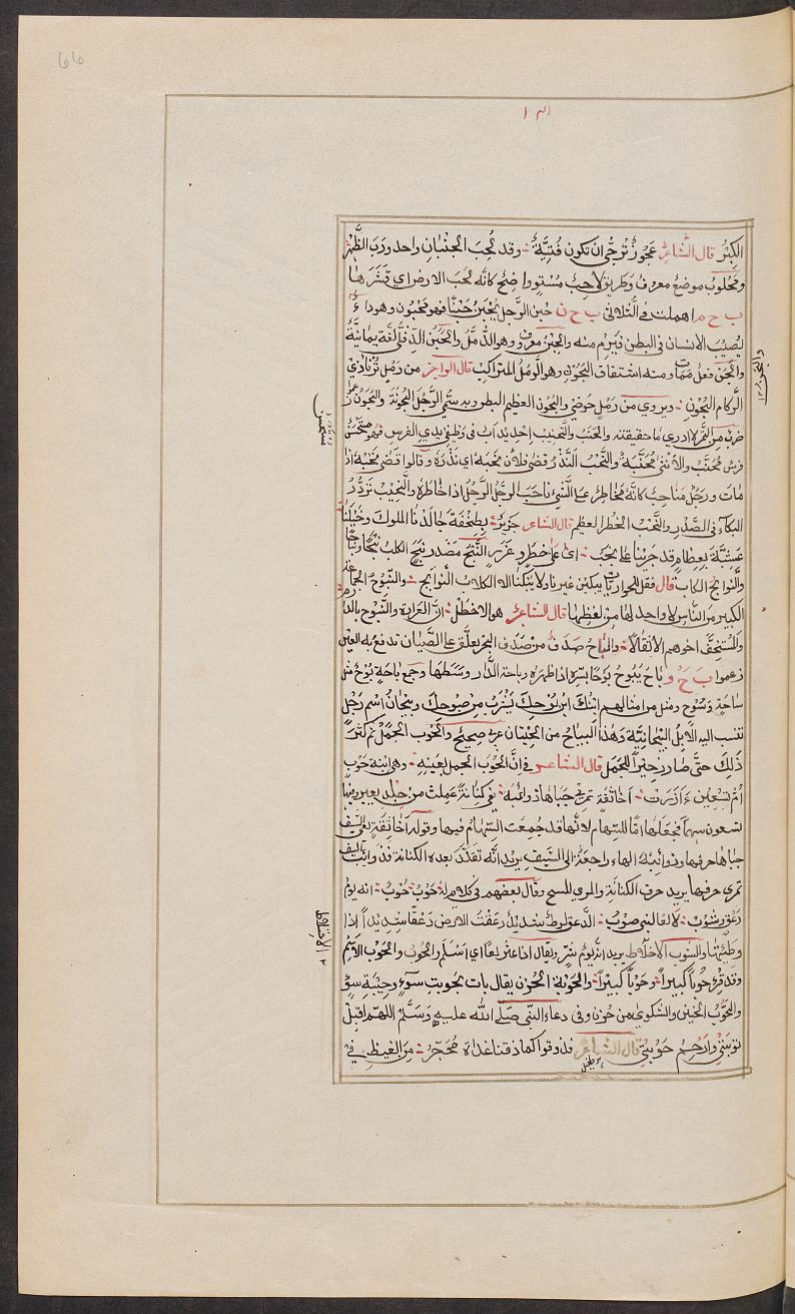 ٦٦
الكِبَرُ قال الشاعر عَجُوزٌ تُرَجّى ان تكون فُتِيَّةً وقد لحبَ الجنبانِ واحدودَبَ الظَّهرُ
وملحوب موضع معروف وطريق لاحب مستو واضح كانّه لحب الارض اي قشرها
ب ح م اهملت في الثلاثي ب ح ن حبن الرجل يحبن حبنا فهو محبون وهو داء
يصيب الانسان في البطن فيَرِم منه والحبن معروف وهو الدُمَّل والحبن الدفلى لغة يمانية
والبحن فعل ممات ومنه اشتقاق البحون وهو الرمل المتراكب قال الراجز من رمل ترنى ذي
الركام البحون ويروى من رمل حوضى والبحون العظيم البطن وبه سمي الرجل بحونة والبحون
ضرب من التمر لا ادري ما حقيقته والحنب والتحنيب احديداب في وظيفي يدي الفرس فهو
فرس محنَّب والانثى محنَّبة والنحب النذر قضى فلان نحبه اي نذره وقالوا قضى نحبه اذا
مات ورجل مناحب كانه مخاطر على الشيء ناحب الرجل الرجل اذا خاطره والنحيب تردد
البكاء في الصدر والنحب الخطر العظيم قال الشاعر جرير بطخفة جالدنا الملوك وخيلنا
عشيّة بسطام قد جرين على نحب اي على خطر وغرر النبح مصدر نبح الكلب نبحا ونباحا
والنوابح الكلاب قال فقل للحواريات يبكين غيرنا ولا يبكنا الا الكلاب النوابح والنبوح الجماعة
الكبير من الناس لا واحد لها من لفظها قال الشاعر هو الاخطل ان العرارة والنبوح بالدارم
والمستخف اخوهم الاثقالا والنباح صدف من صدف البحر يعلق على الصبيان تدفع به العين
زعموا ب ح و باح يبوح بوحا بسره اذا اظهره وباحة الدار وسطها وجمع باحة بوح مثل
ساحة وسوح ومثل من امثالهم ابنك ابن بوحك يشرب من صبوحك وبيحان اسم رجل
تنسب اليه الابل البيحانية وهذا البياح من الحيتان عربي صحيح والحوب الجمل ثم كثر
ذلك حتى صار زجرا للجمل قال الشاعر في ان الحوب الجمل بعينه وهي ابنة حوب
امّ تسعين آزرت اخا ثقة تمري جباها ذوائبه يعني كنانة عملت من جلد بعير وفيها
تسعون سهما فجعلها امّا للسهام لانها قد جمعت السهام فيها وقوله اخا ثقة يعني السيف
جباها حرفها وذوائبه الهاء راجعة الى السيف يريد انه تقلد بعده الكنانة فذوائب السيف
تمري حرفها يريد حرف الكنانة والمري المسح وقال بعضهم في كلام له حوب حوب انه يوم
دعق وشوب لا لعا لبني صوب الدعق الوطء الشديد دعقت الارض دعقا شديدا اذا
وطئتها والشوب الاختلاط يريد انه يوم شر ويقال اذا عثر لعا اي اسلم والحوب والحوب الاثم
وقد قرئ حوبا كبيرا وحوبا كبيرا والحوبة الحزن يقال بات بحوبة سوء وحيبة سوء
والتحوب الحنين والشكوى من حزن وفي دعاء النبي صلى الله عليه وسلم اللهم اقبل
توبتي وارحم حوبتي قال الشاعر فذوقوا كما ذقنا غداة محجر من الغيظ في
الاختلاط